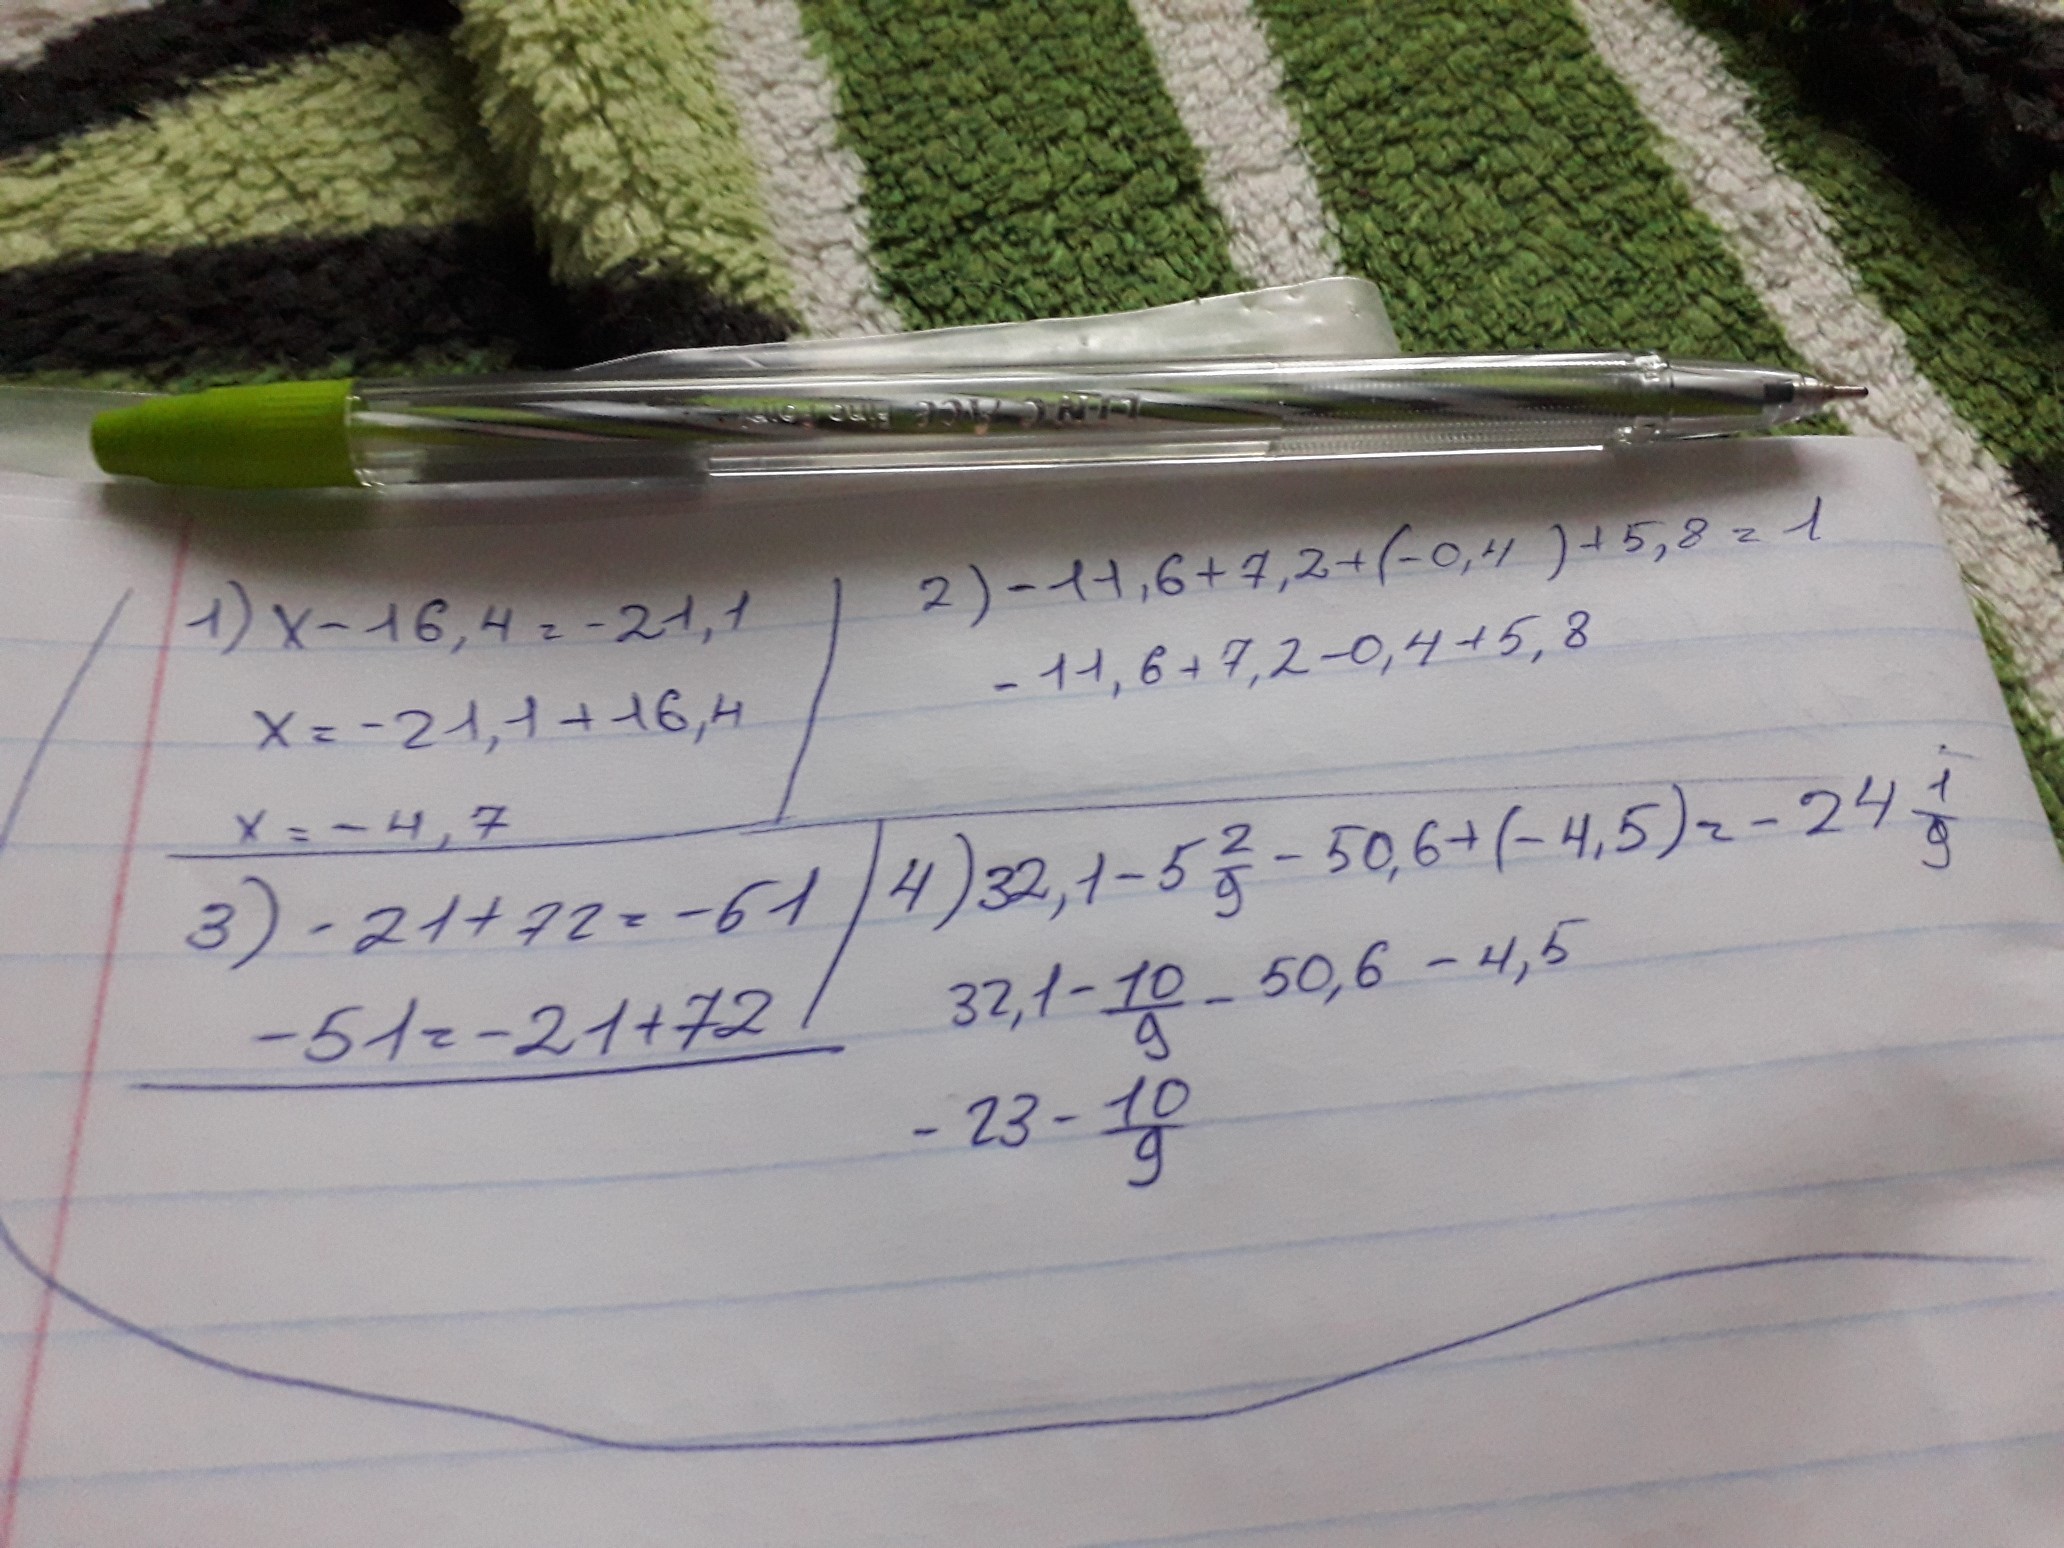 1) x-16,4=-21,1
x=-21,1+16,4
x=-4,7
2) -11,6+7,2+(-0,4)+5,8=1
-11,6+7,2-0,4+5,8
3) -21+72=-51
-51=-21+72
4) 32,1-5 2/9-50,6+(-4,5)=-24 1/9
32,1-10/9-50,6-4,5
-23-10/9